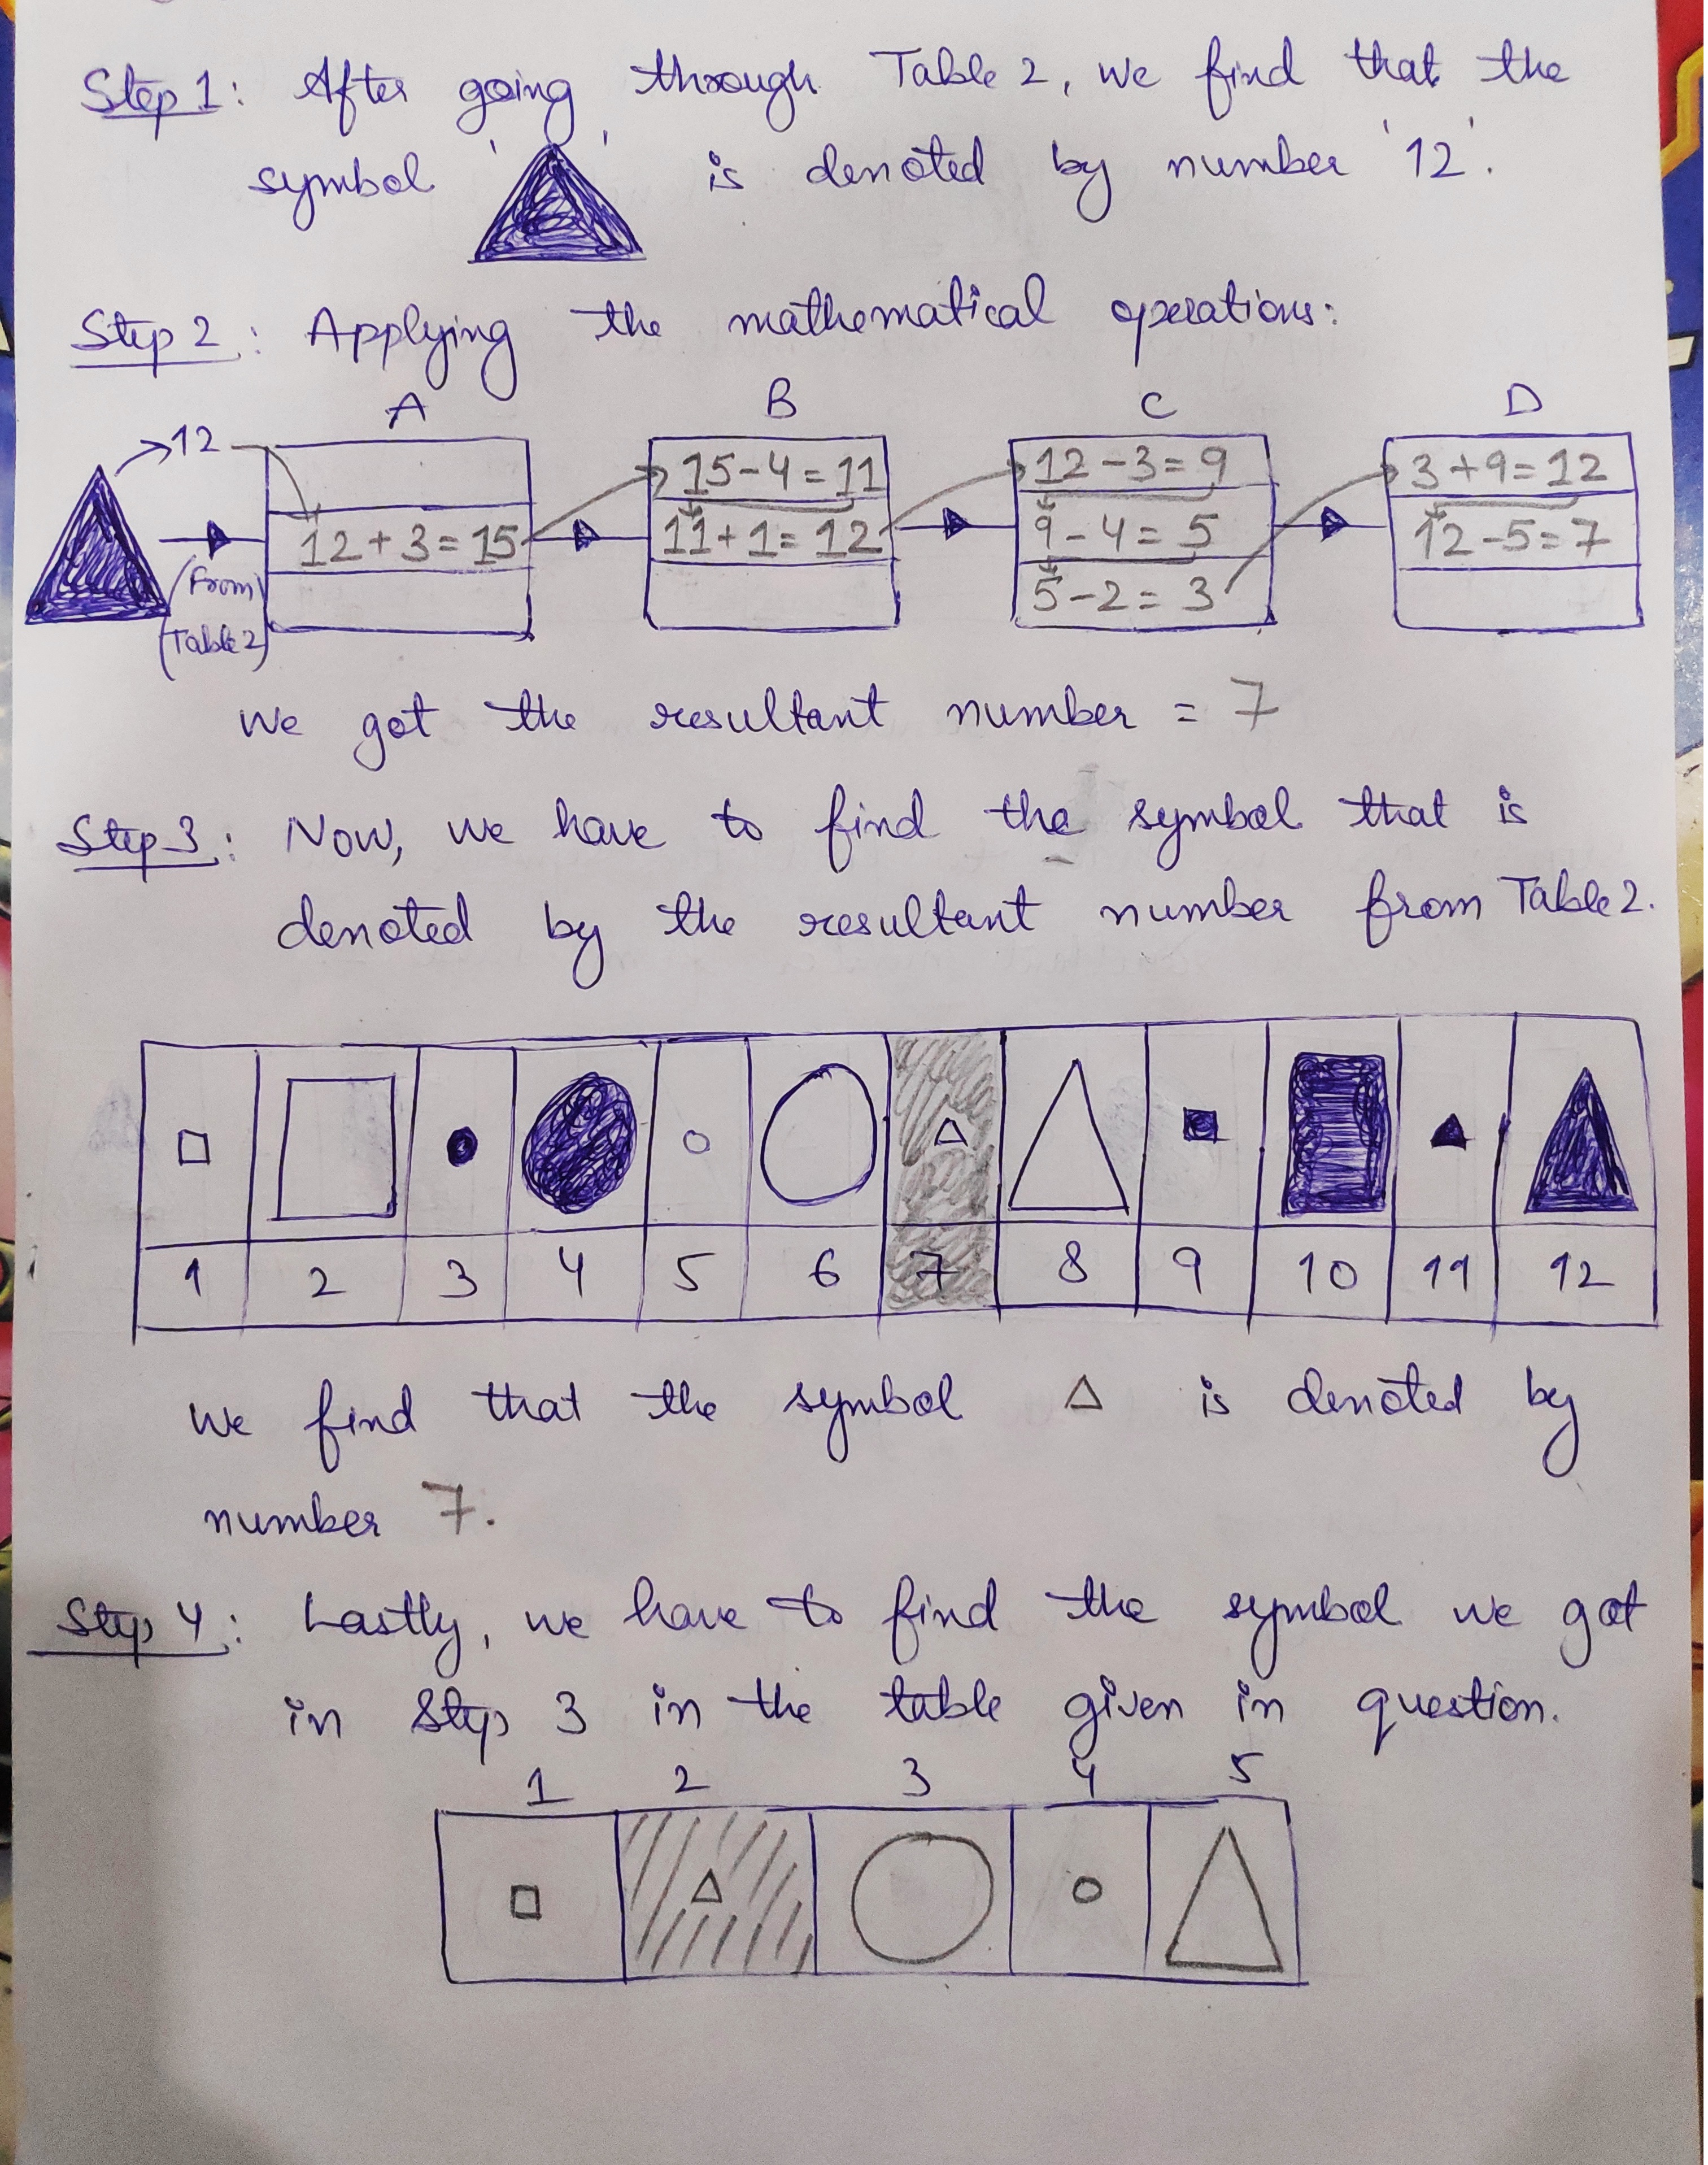 Step 1: After going through Table 2, we find that the
symbol ' ' is denoted by number '12'.
Step 2: Applying the mathematical operations:
A B C D
12
15-4=11 12-3=9 3+9=12
12+3=15 11+1=12 9-4=5 12-5=7
(From 5-2=3
Table 2)
We got the resultant number = 7
Step 3: Now, we have to find the symbol that is
denoted by the resultant number from Table 2.
1 2 3 4 5 6 7 8 9 10 11 12
We find that the symbol is denoted by
number 7.
Step 4: Lastly, we have to find the symbol we got
in Step 3 in the table given in question.
1 2 3 4 5